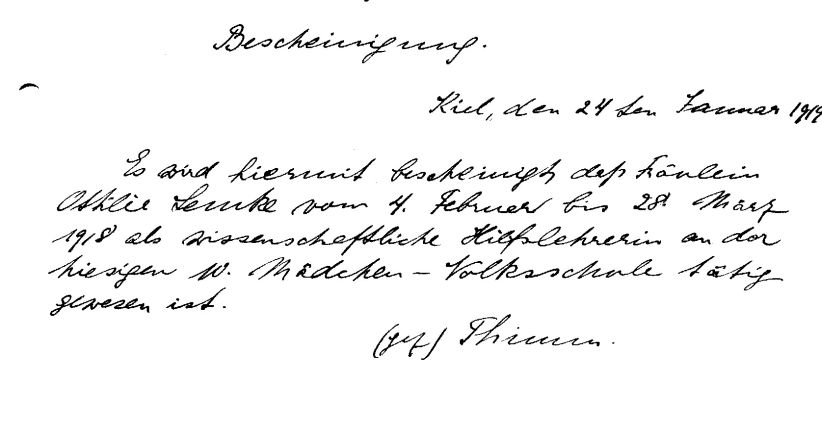 Bescheinigung.
Kiel, den 24 ten Januar 1919
Es wird hiermit bescheinigt, daß Fräulein
Ottilie Lemke vom 4. Februar bis 28. März
1918 als wissenschaftliche Hilfslehrerin an der
hiesigen 10. Mädchen - Volksschule tätig
gewesen ist.
(gez) Thimm.